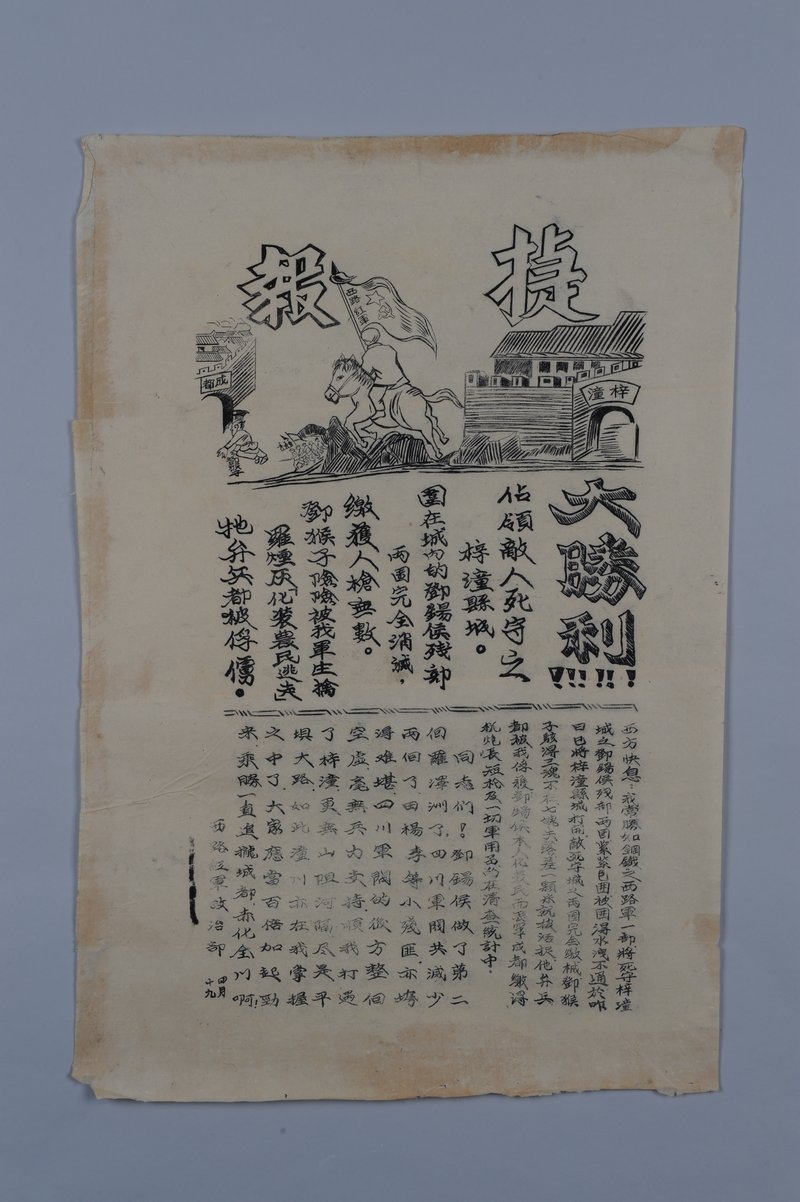 捷報
西路紅軍
梓潼
成都
大勝利!!!!!
佔領敵人死守之
梓潼縣城。
圍在城內的鄧錫侯殘部
兩團完全消滅,
繳獲人槍無數。
鄧猴子險險被我軍生擒
「羅煙灰」化裝農民逃走
牠弁兵都被俘虜。
西方快息:我當勝如鋼鐵之西路軍一部將死守梓潼
城之鄧錫侯殘部兩團緊緊包圍被困得水洩不通於昨
日已將梓潼縣城打開敵死守城之兩團完全繳械鄧猴
子駭得三魂不在七魄失落差一顆米就被活捉他弁兵
都被我俘獲鄧錫侯本人化裝農民而逃成都繳得
机炮長短枪及一切軍用品尚在清查統計中.
同志們!鄧錫侯做了第二
個羅澤洲了,四川軍閥共滅少
兩個了田楊李等小殘匪亦垮
得難堪.四川軍閥的後方整個
空虛毫無兵力支持.順我打過
了梓潼更無山阻河隔尽是平
壩大路.如此潼川亦在我掌握
之中了.大家應當百倍加起勁
來.乘勝一直追搗城都.赤化全川啊!
西路紅軍政治部
四月十九